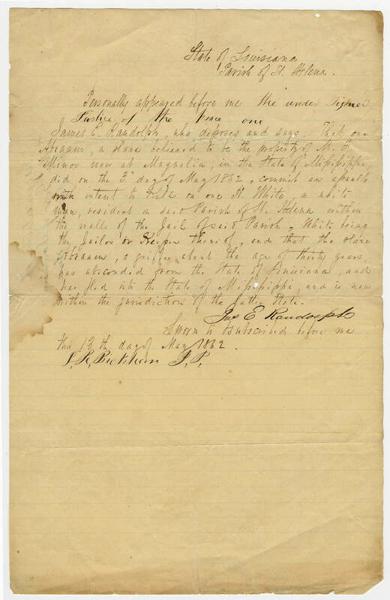 State of Louisiana
Parish of St. Helena.
Personally appeared before me the under signed
Justice of the Peace one
James E. Randolph, who deposes and says, That one
a slave believed to be the property of
Minor now at Magnolia, in the State of Mississippi,
did on the day of May 1862, commit an assault
with intent to kill on one White, a white
man, resident in said Parish of St. Helena within
the walls of the Jail of said Parish, White being
the Jailor or Keeper thereof, and that the slave
a griffe, about the age of thirty years,
has absconded from the State of Louisiana, and
has fled into the State of Mississippi, and is now
within the jurisdiction of the latter State.
Jas E Randolph
Sworn to & subscribed before me
this 13th day of May 1862.
J. P.